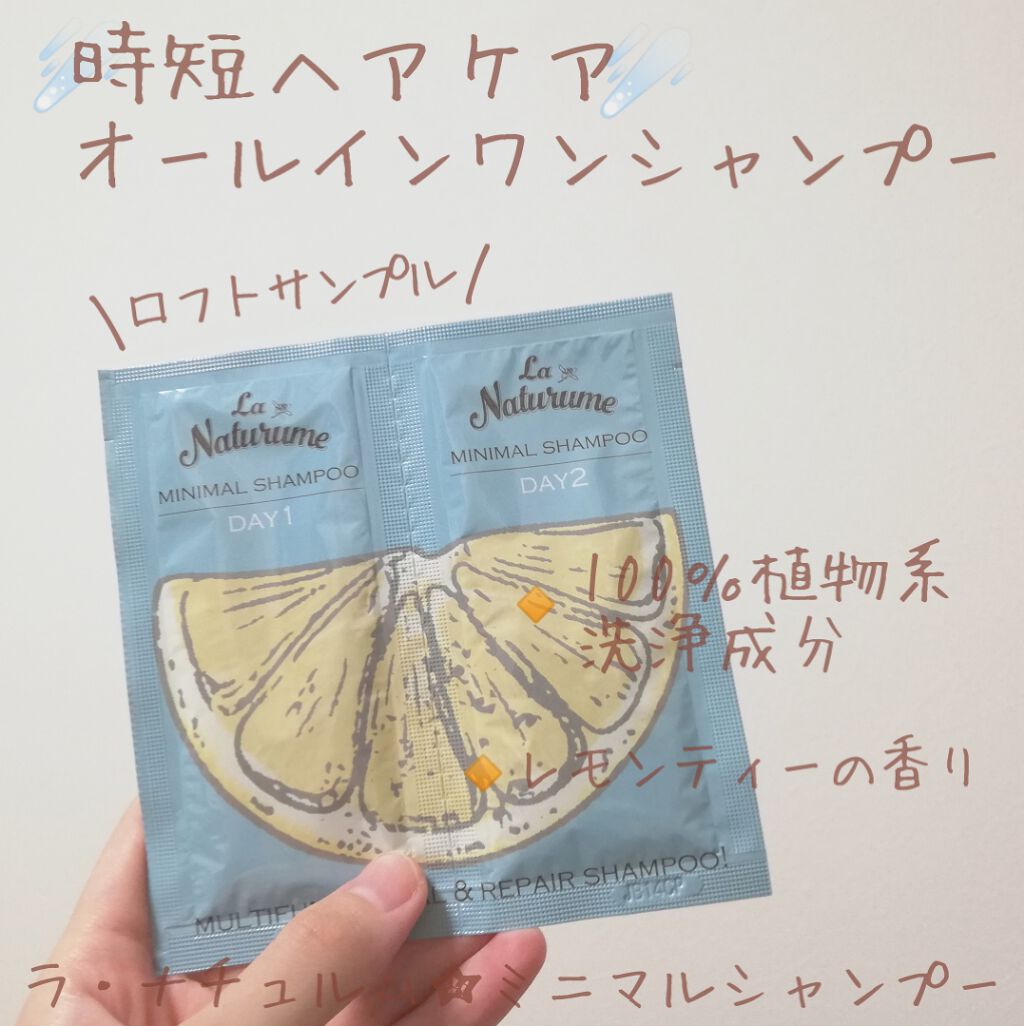 時短ヘアケア
オールインワンシャンプー
\ロフトサンプル/
La
Naturume
MINIMAL SHAMPOO
DAY1
La
Naturume
MINIMAL SHAMPOO
DAY2
100%植物系
洗浄成分
レモンティーの香り
& REPAIR SHAMPOO!
ラ・ナチュルム☆ミニマルシャンプー